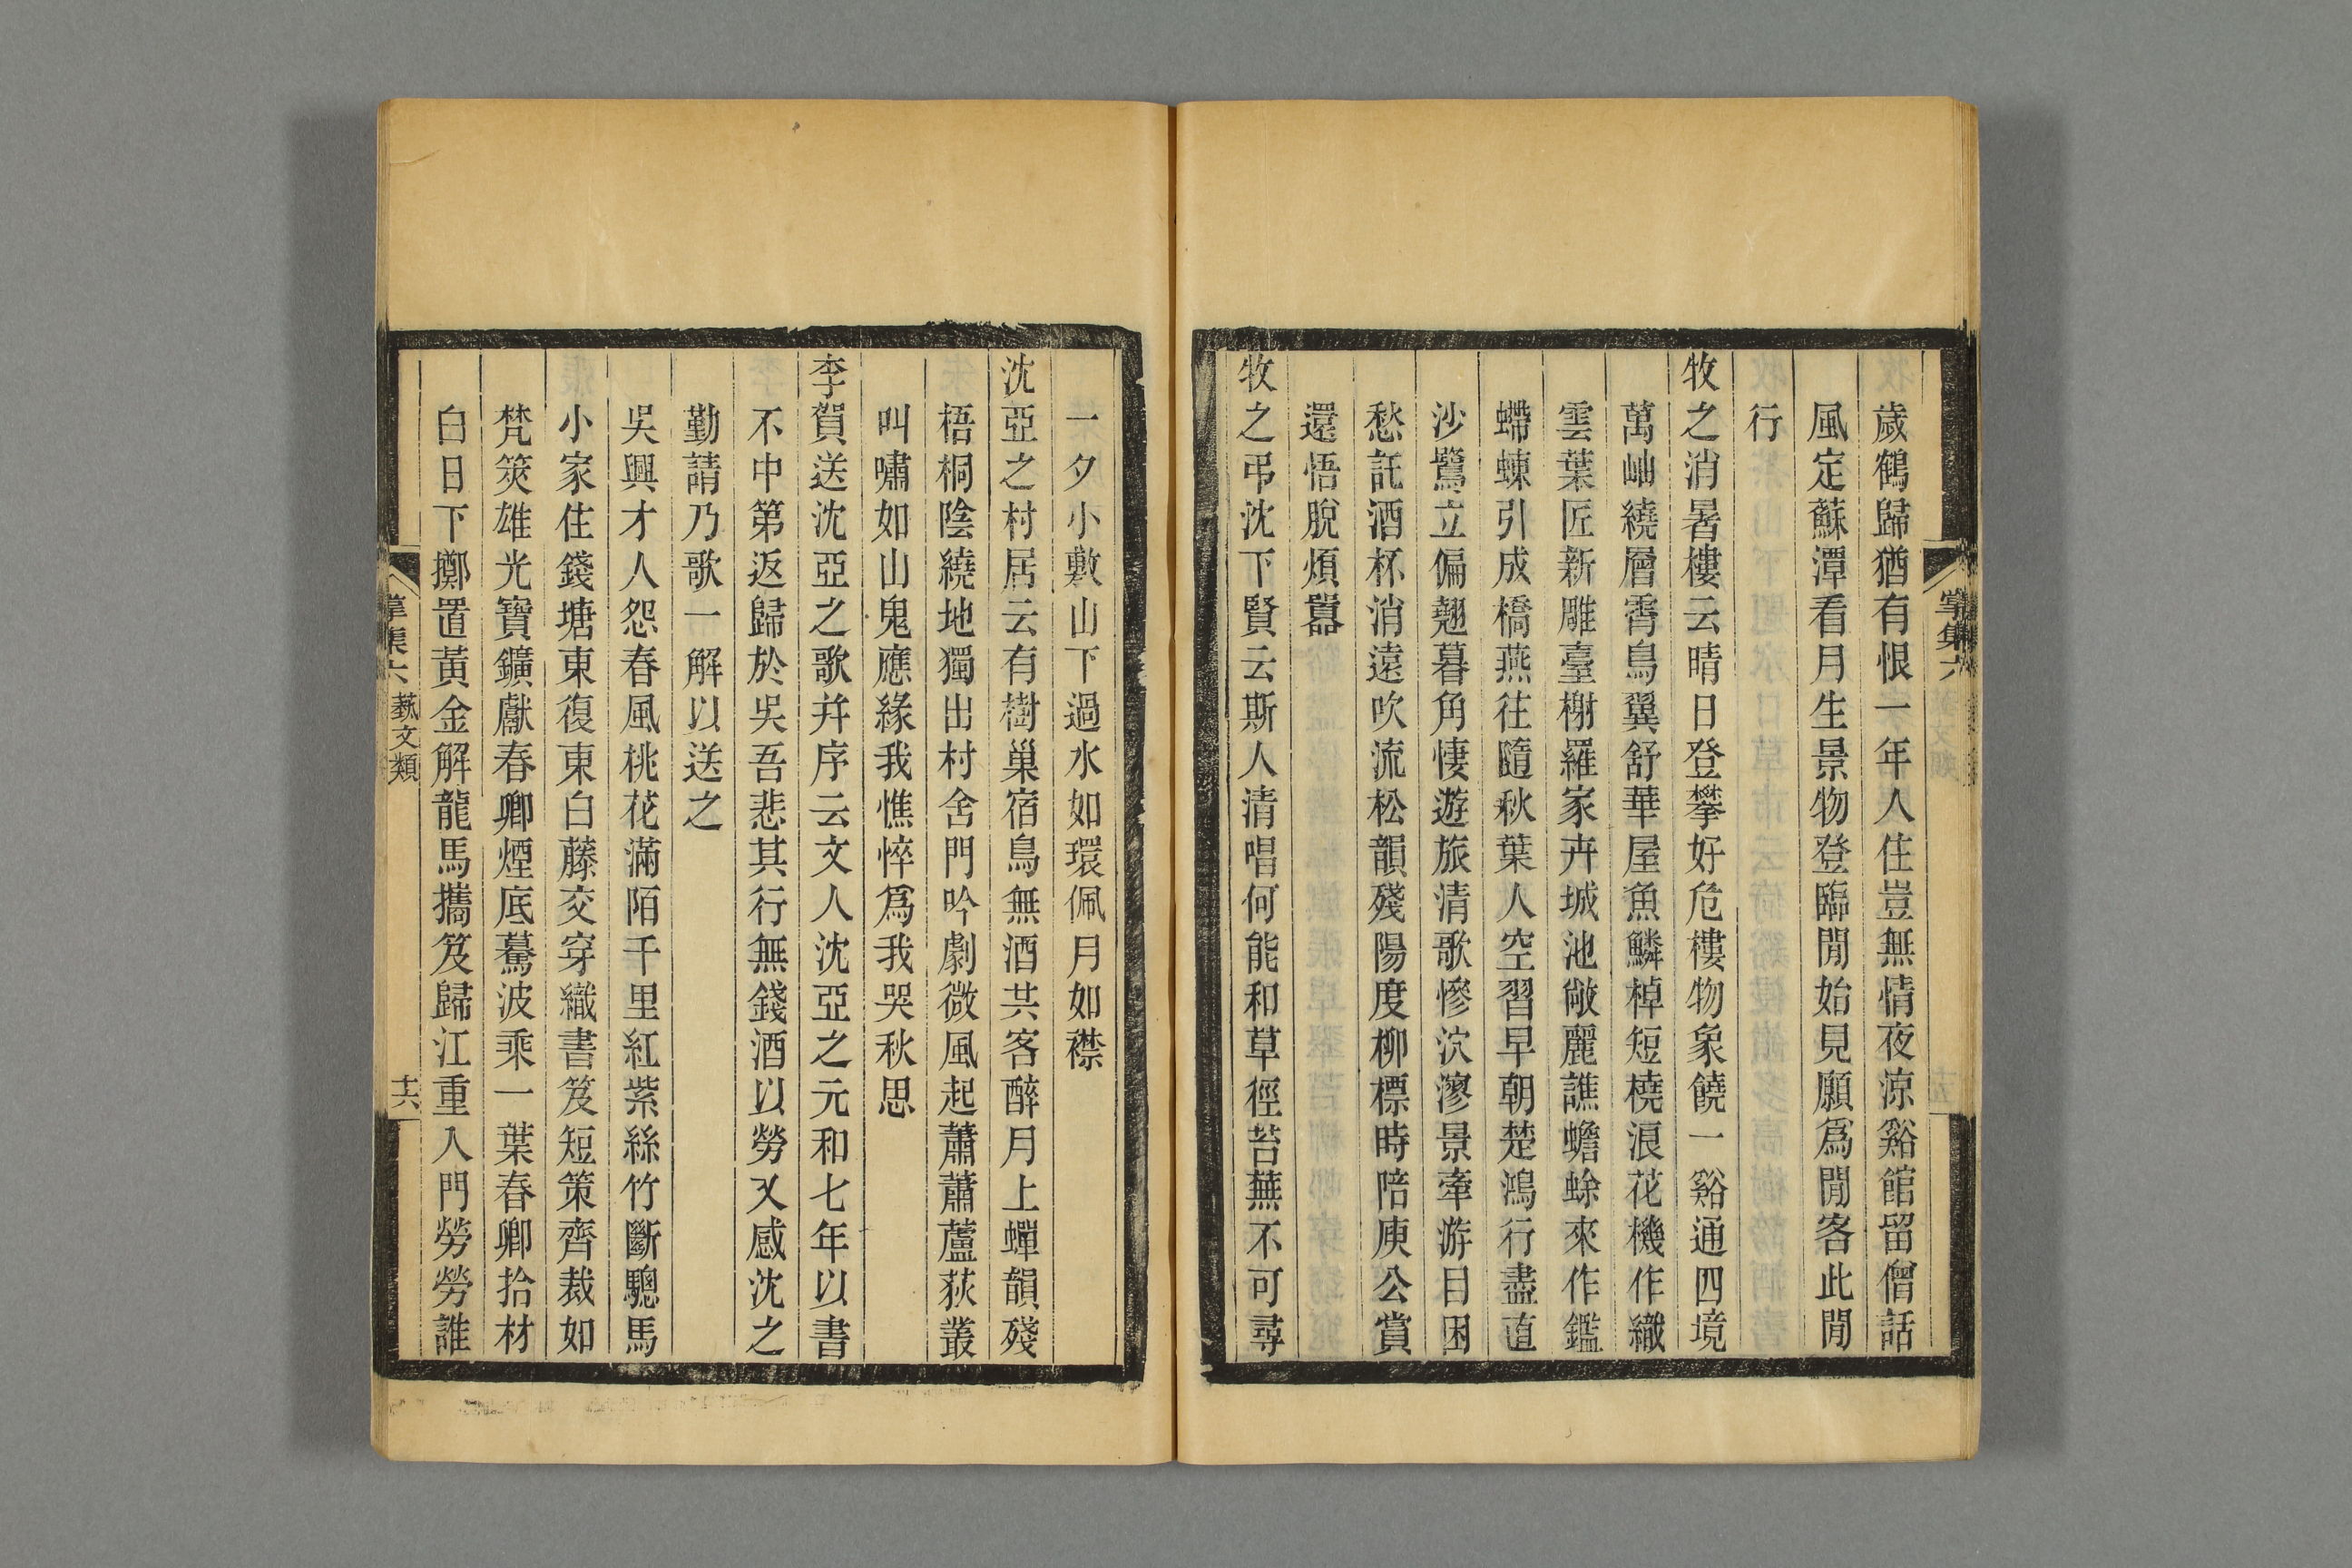 歲鶴歸猶有恨一年人住豈無情夜涼谿館留僧話
風定蘇潭看月生景物登臨閒始見願爲閒客此閒
行
牧之消暑樓云晴日登攀好危樓物象饒一谿通四境
萬岫繞層霄鳥翼舒華屋魚鱗棹短橈浪花機作織
雲葉匠新雕臺榭羅家卉城池敞麗譙蟾蜍來作鑑
螮蝀引成橋燕往隨秋葉人空習早朝楚鴻行盡直
沙鷺立偏翹暮角悽遊旅清歌慘泬漻景牽游目困
愁託酒杯消遠吹流松韻殘陽度柳標時陪庾公賞
還悟脫煩囂
牧之弔沈下賢云斯人清唱何能和草徑苔蕪不可尋
掌集六
一夕小敷山下過水如環佩月如襟
沈亞之村居云有樹巢宿鳥無酒共客醉月上蟬韻殘
梧桐陰繞地獨出村舍門吟劇微風起蕭蕭蘆荻叢
叫嘯如山鬼應緣我憔悴爲我哭秋思
李賀送沈亞之歌并序云文人沈亞之元和七年以書
不中第返歸於吳吾悲其行無錢酒以勞又感沈之
勤請乃歌一解以送之
吳興才人怨春風桃花滿陌千里紅紫絲竹斷驄馬
小家住錢塘東復東白藤交穿織書笈短策齊裁如
梵筴雄光寶鑛獻春卿煙底驀波乘一葉春卿拾材
白日下擲置黃金解龍馬攜笈歸江重入門勞勞誰
掌集六 藝文類 十六